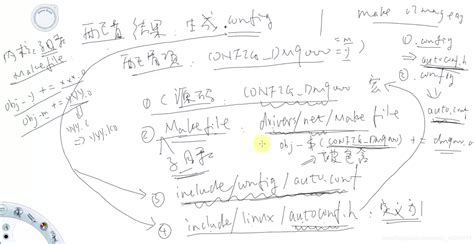 配置结果：生成.config
配置项：CONFIG_DM9000 =y
=m
make uImage
内核子目录
Makefile
obj-y += xxx.o
obj-m += yyy.o
yyy.c
=> yyy.ko
① .config
=> autoconf.h
② .config
auto.conf
① C源码：CONFIG_DM9000
宏
② Makefile：drivers/net/Makefile
子目录
obj-$(CONFIG_DM9000) += dm9000.o
③ include/config/auto.conf
④ include/linux/autoconf.h：